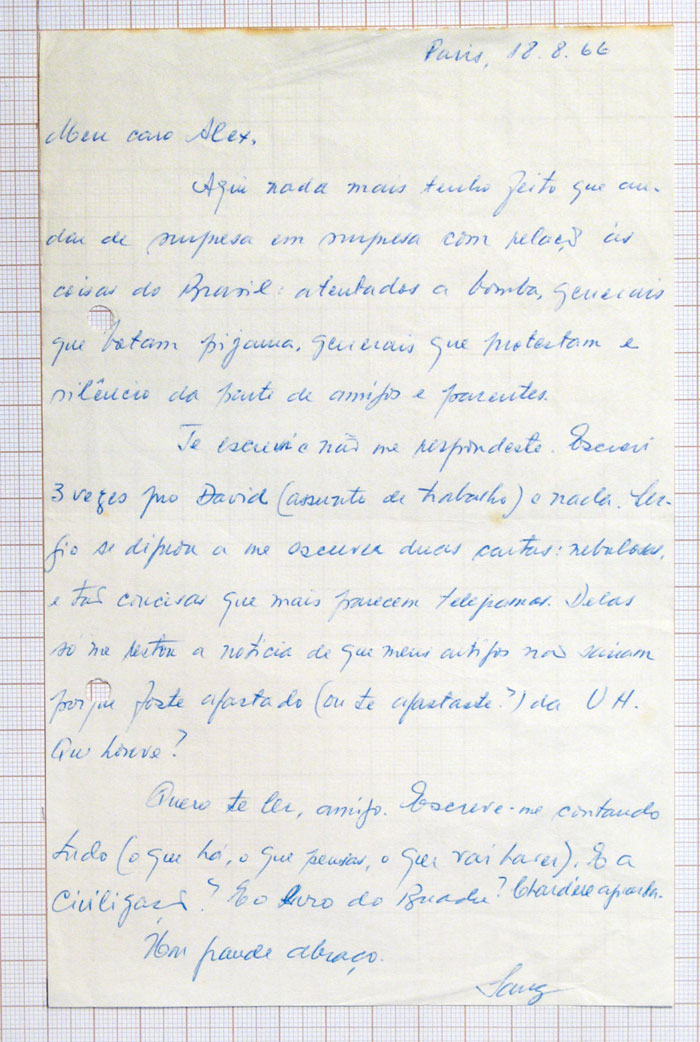 Paris, 18.8.66
Meu caro Alex,
Aqui nada mais tenho feito que an-
dar de surpresa em surpresa com relação às
coisas do Brasil: atentados a bomba, generais
que botam pijama, generais que protestam e
silêncio da parte de amigos e parentes.
Te escrevi e não me respondeste. Escrevi
3 vezes pro David (assunto de trabalho) e nada. Sér-
gio se dignou a me escrever duas cartas: nebulosas,
e tão concisas que mais parecem telegramas. Delas
só me restou a notícia de que meus artigos não saíram
porque foste afastado (ou te afastaste?) da UH.
Que houve?
Quero te ler, amigo. Escreve-me contando
tudo (o que há, o que pensas, o que vai haver). E a
Civilização? E o livro do
Um grande abraço.